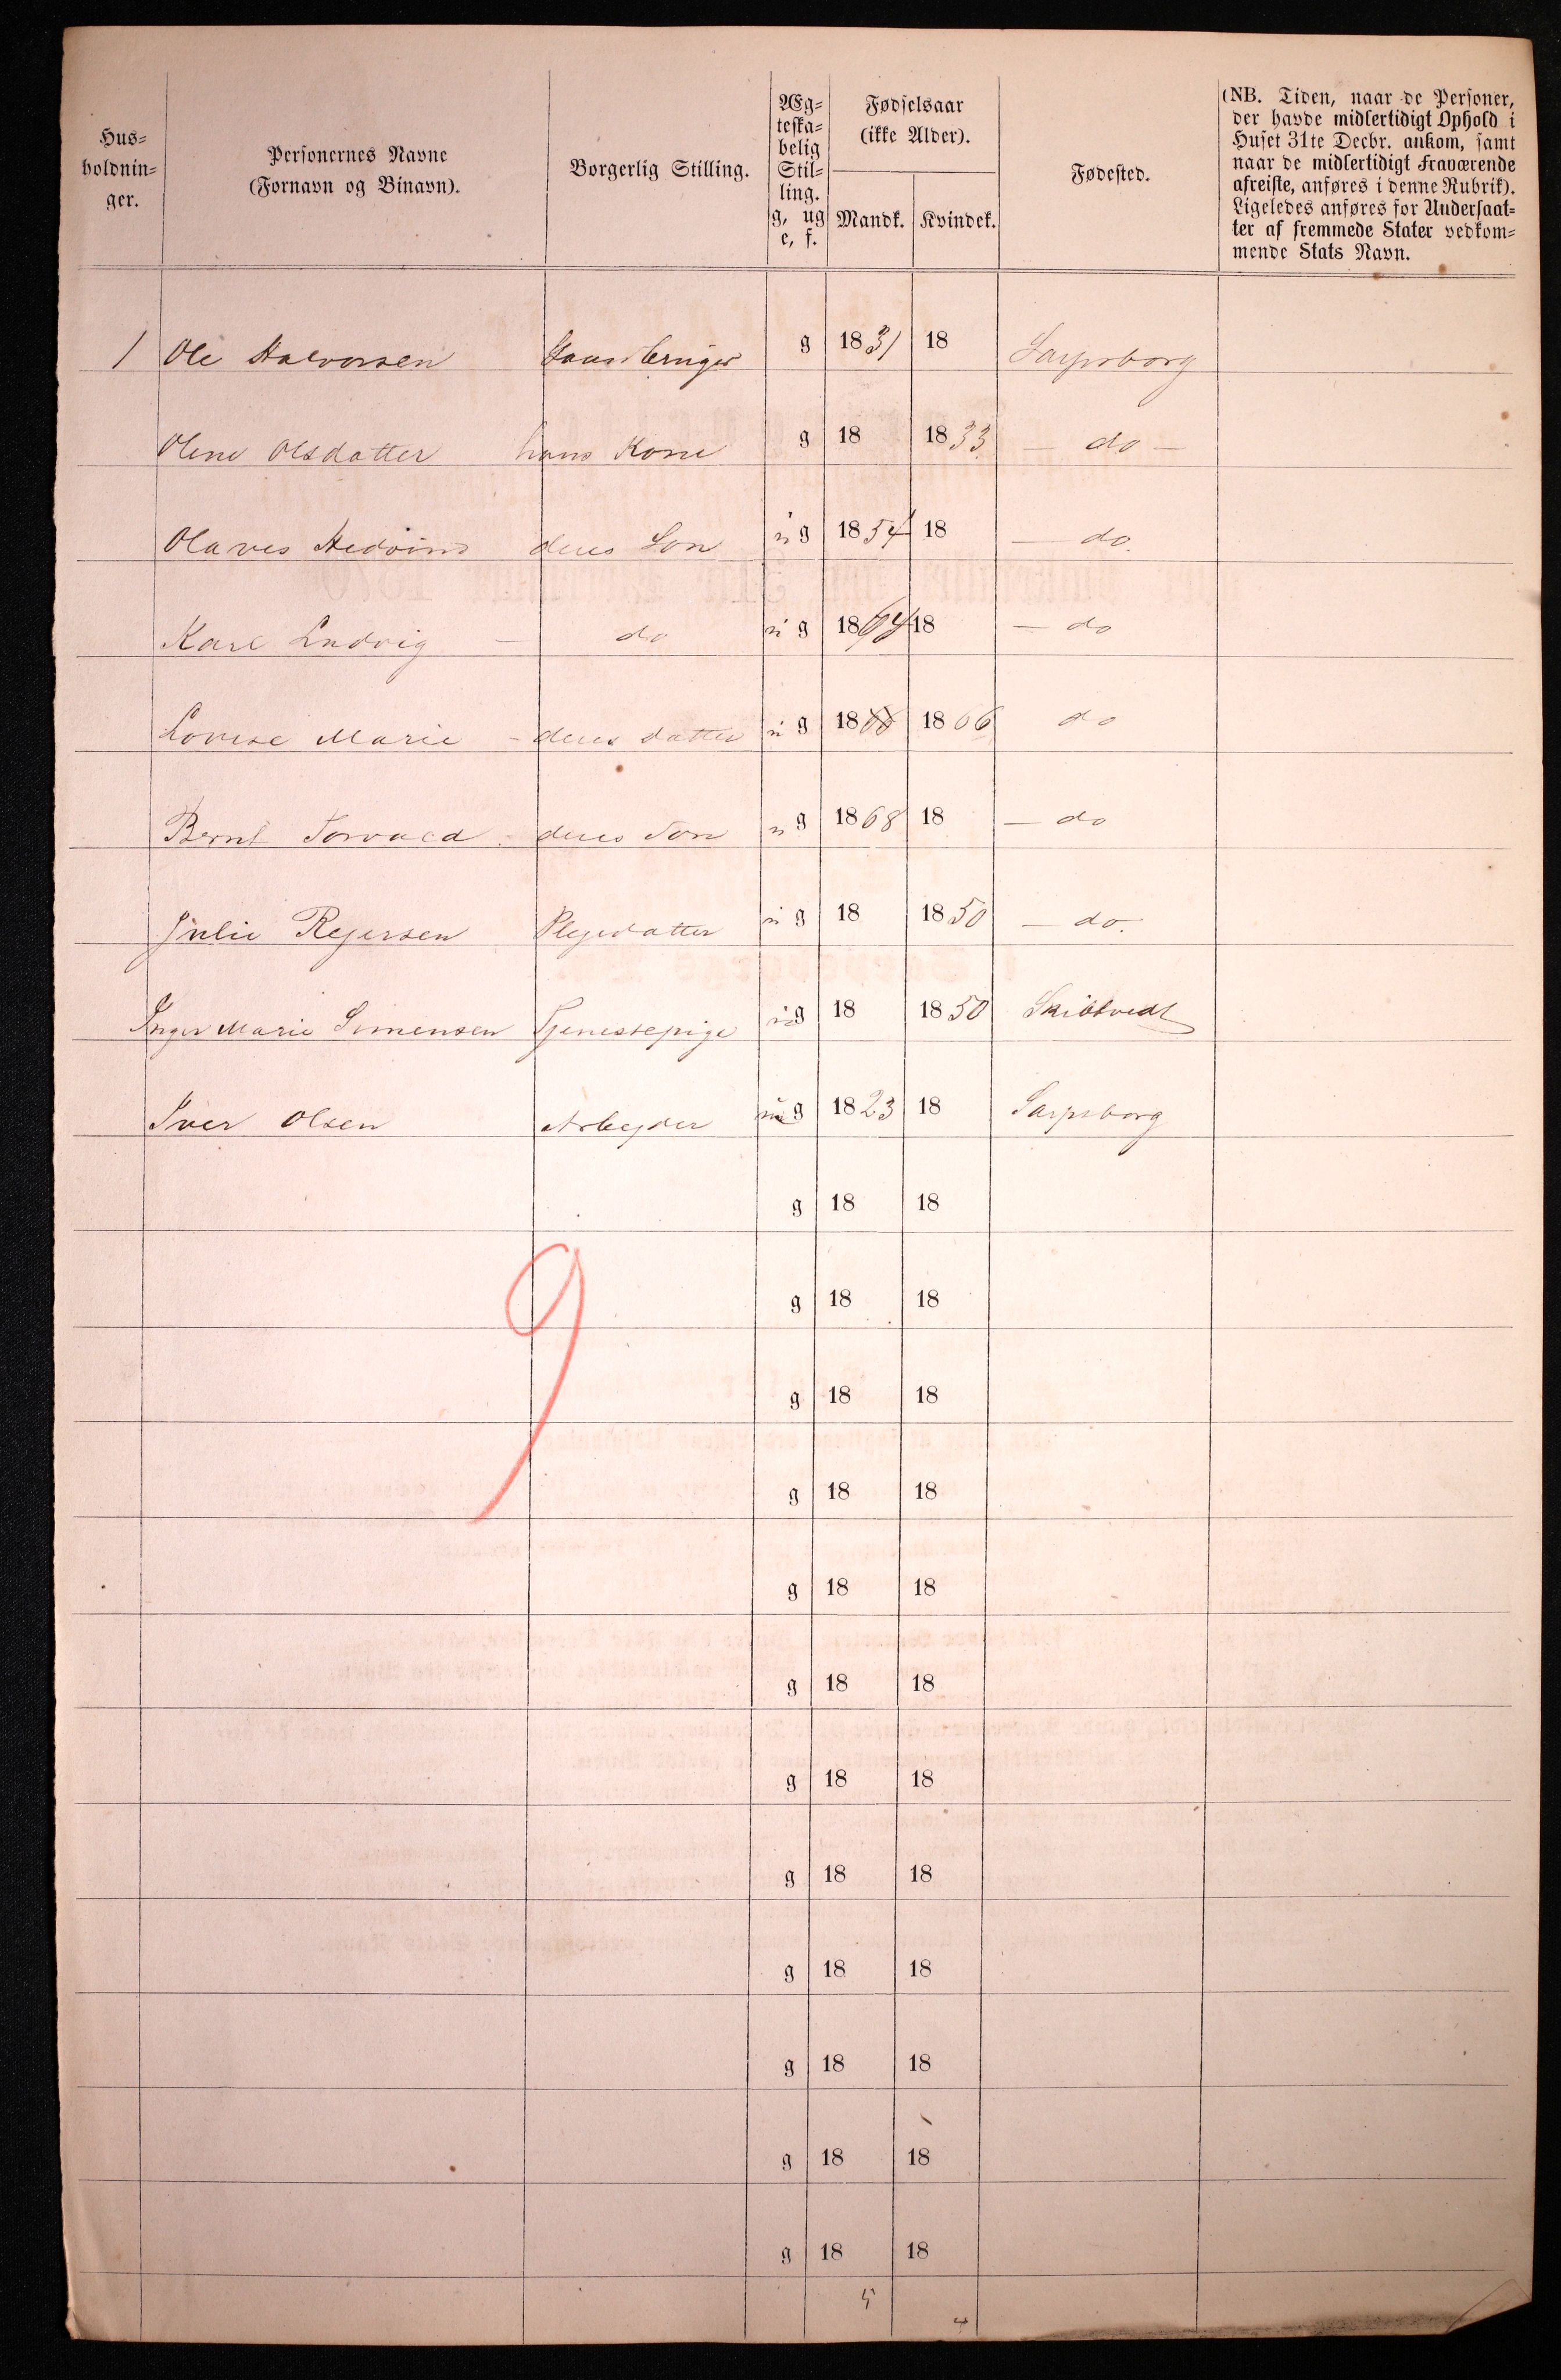 Hus-
holdnin-
ger.
Personernes Navne
(Fornavn og Binavn).
Borgerlig Stilling.
Æg-
teska-
belig
Stil-
ling.
g, ug
e, f.
Fødselsaar
(ikke Alder).
Mandk. Kvindek.
Fødested.
(NB. Tiden, naar de Personer,
der havde midlertidigt Ophold i
Huset 31te Decbr. ankom, samt
naar de midlertidigt Fraværende
afreiste, anføres i denne Rubrik).
Ligeledes anføres for Undersaat-
ter af fremmede Stater vedkom-
mende Stats Navn.
1 Ole Halvorsen g 1831 18 Sarpsborg
Olene Olsdatter hans Kone g 18 1833 — do —
Olaves Hedvins deres Son u g 1854 18 — do.
Karl Ludvig — do u g 1864 18 — do
Lovise Marie - deres datter u g 18 1866 do
Bernt Torvald deres Son u g 1868 18 — do
Julie Rejersen Plejedatter u g 18 1850 — do.
Inger Marie Simensen Tjenestepige u g 18 1850 Skibtvedt
Iver Olsen Arbejder u g 1823 18 Sarpsborg
g 18 18
g 18 18
g 18 18
g 18 18
g 18 18
g 18 18
g 18 18
g 18 18
g 18 18
g 18 18
g 18 18
g 18 18
9
5 4